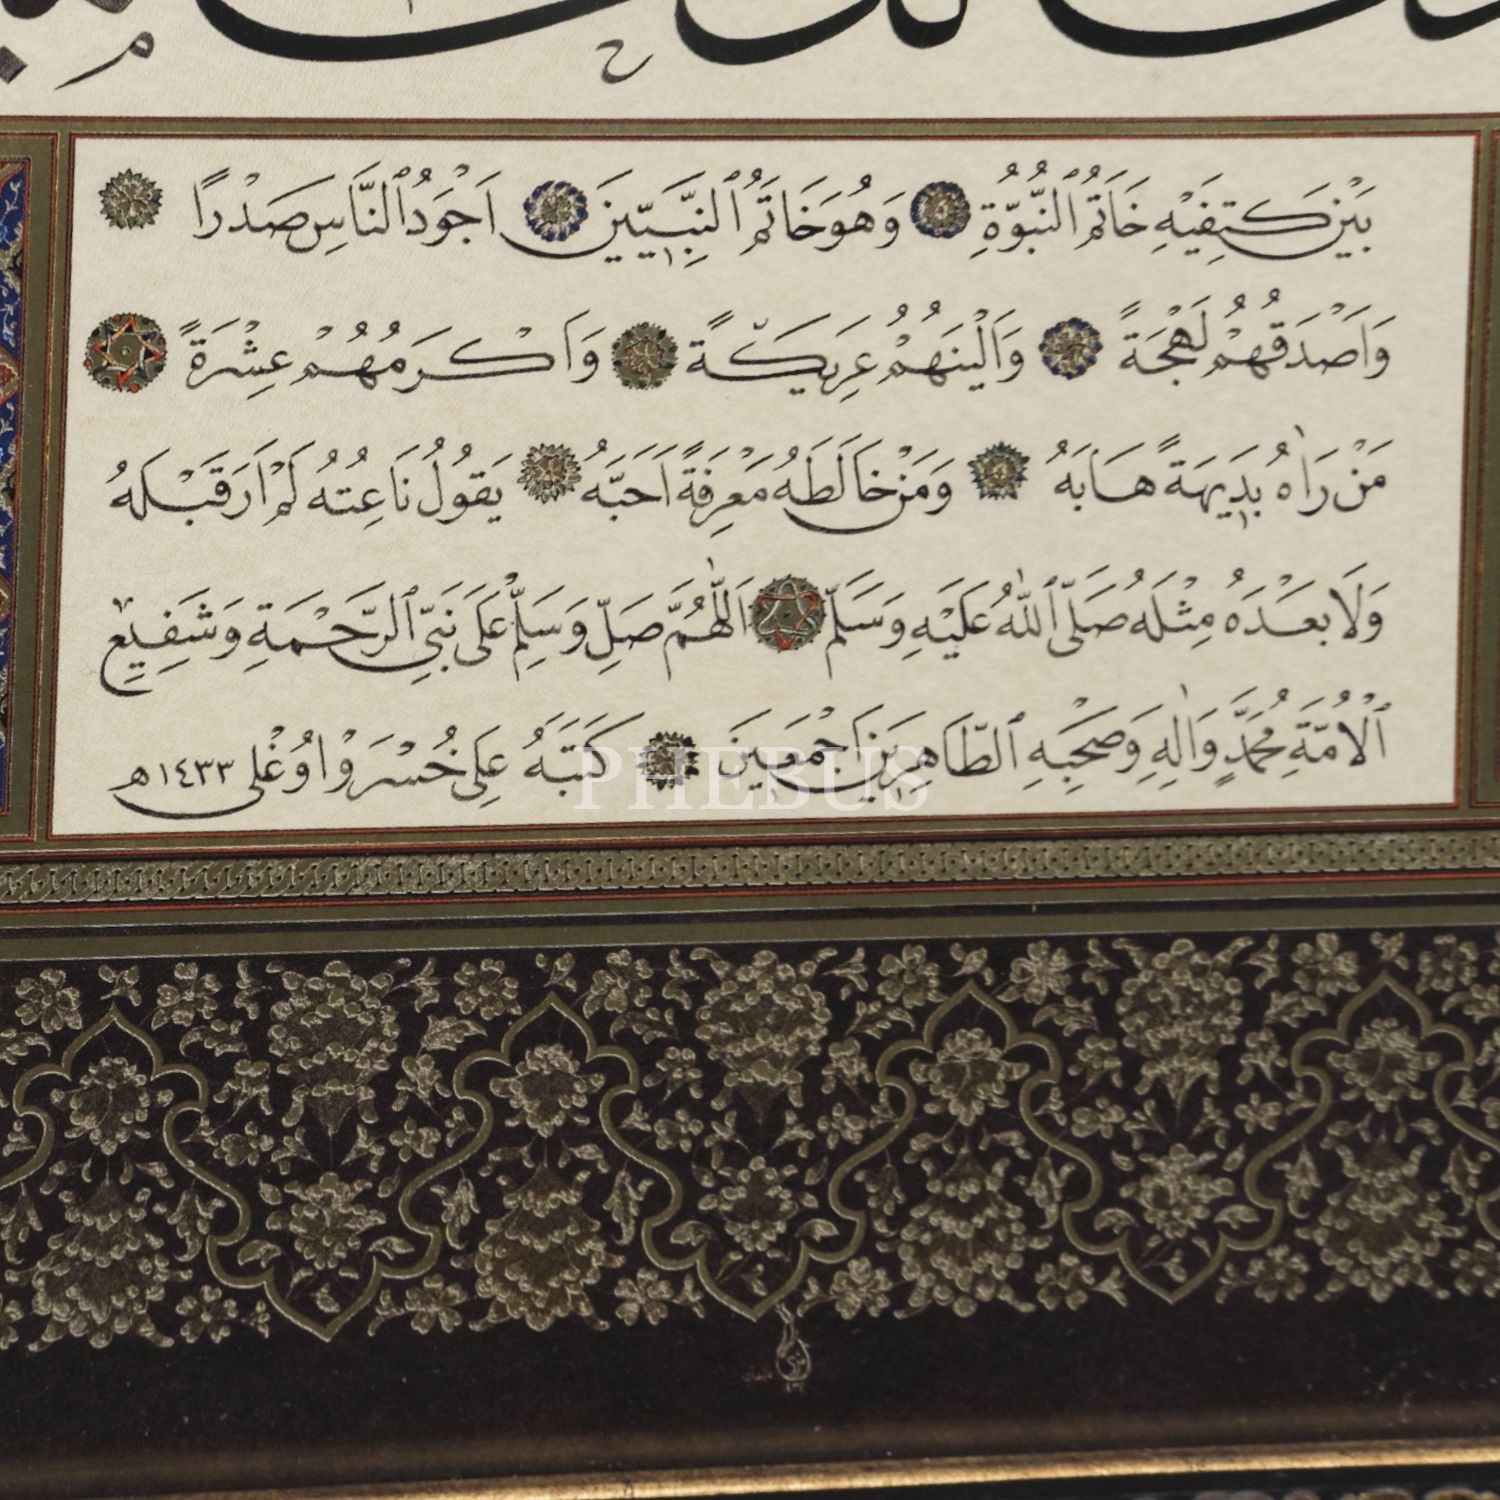 بَيْنَ كَتِفَيْهِ خَاتَمُ ٱلنُّبُوَّةِ وَهُوَ خَاتَمُ ٱلنَّبِيّينَ اَجْوَدُ ٱلنَّاسِ صَدْرًا
وَاَصْدَقُهُمْ لَهْجَةً وَاَلْيَنُهُمْ عَرِيكَةً وَاَكْرَمُهُمْ عِشْرَةً
مَنْ رَاٰهُ بَدِيهَةً هَابَهُ وَمَنْ خَالَطَهُ مَعْرِفَةً اَحَبَّهُ يَقُولُ نَاعِتُهُ لَمْ اَرَ قَبْلَهُ
وَلَا بَعْدَهُ مِثْلَهُ صَلَّى ٱللّٰهُ عَلَيْهِ وَسَلَّمَ اَللّٰهُمَّ صَلِّ وَسَلِّمْ عَلَى نَبِيِّ ٱلرَّحْمَةِ وَشَفِيعِ
ٱلْاُمَّةِ مُحَمَّدٍ وَاٰلِهِ وَصَحْبِهِ ٱلطَّاهِرِينَ اَجْمَعِينَ كَتَبَهُ عَلِى خُسْرَوْ اوُغْلى ١٤٣٣ه
PHEBUS